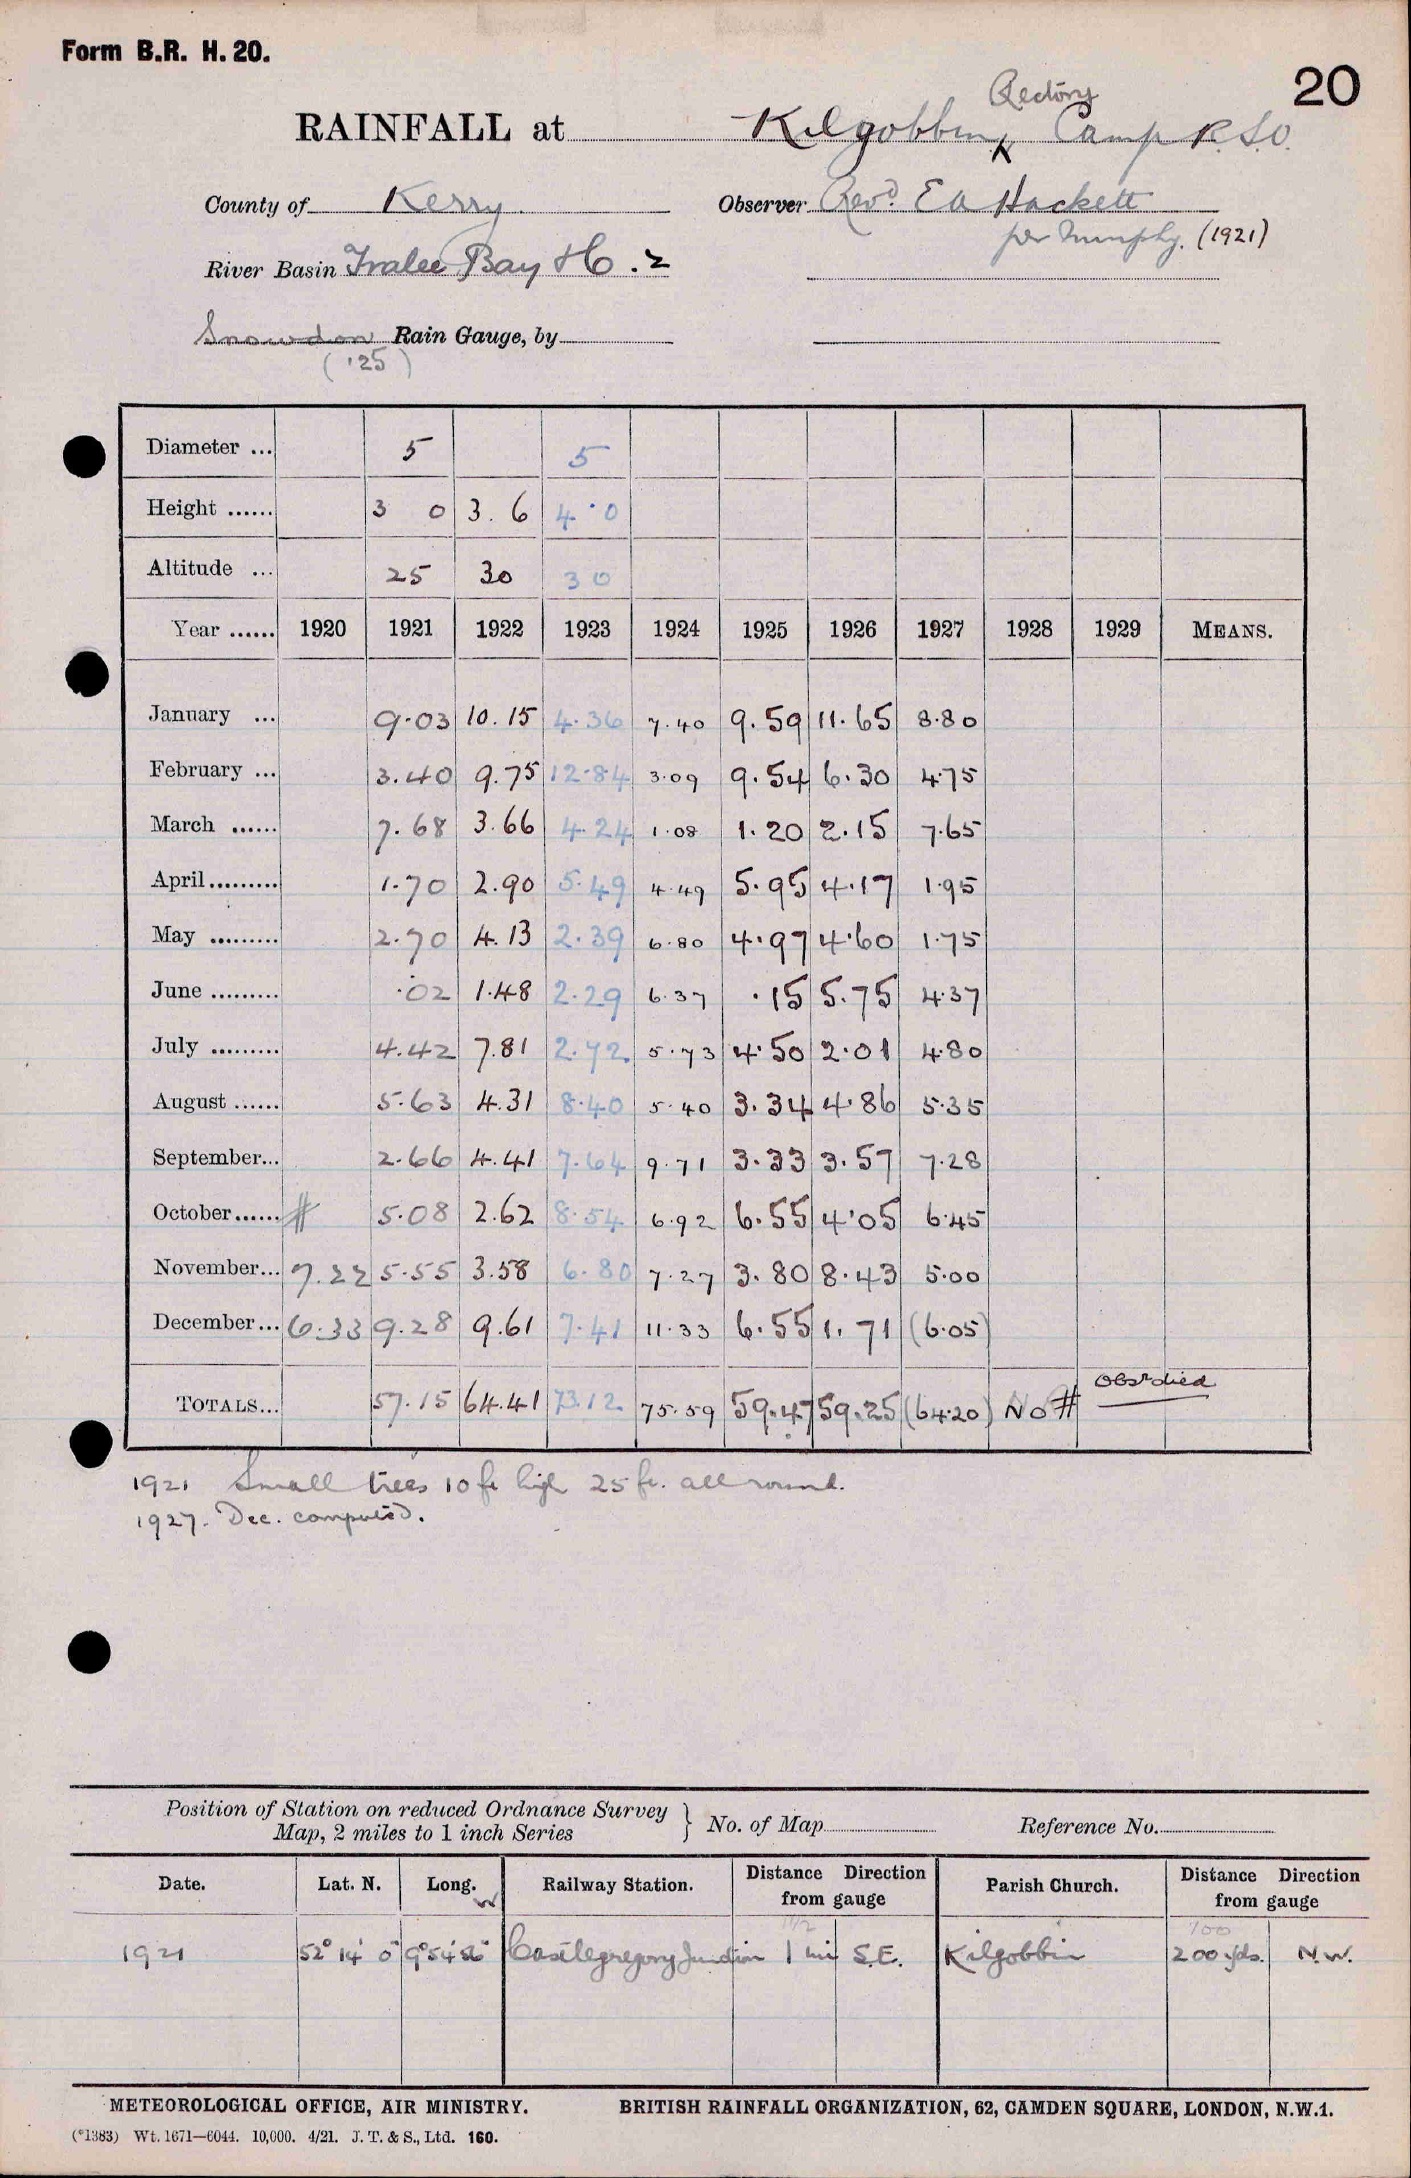 Form B.R. H. 20.
20
Rectory
RAINFALL at Kilgobbin, Camp R.S.O.
County of Kerry Observer Revd. E A Hackett
per Murphy. (1921)
River Basin Tralee Bay H6.2
Snowdon Rain Gauge, by
('25)
Diameter ... 5 5
Height ...... 3 0 3. 6 4·0
Altitude ... 25 30 30
Year ...... 1920 1921 1922 1923 1924 1925 1926 1927 1928 1929 MEANS.
January ... 9.03 10.15 4.36 7.40 9.59 11.65 8.80
February ... 3.40 9.75 12.84 3.09 9.54 6.30 4.75
March ...... 7.68 3.66 4.24 1.08 1.20 2.15 7.65
April......... 1.70 2.90 5.49 4.49 5.95 4.17 1.95
May ......... 2.70 4.13 2.39 6.80 4.97 4.60 1.75
June ......... .02 1.48 2.29 6.37 .15 5.75 4.37
July ......... 4.42 7.81 2.72 5.73 4.50 2.01 4.80
August ...... 5.63 4.31 8.40 5.40 3.34 4.86 5.35
September... 2.66 4.41 7.64 9.71 3.33 3.57 7.28
October...... # 5.08 2.62 8.54 6.92 6.55 4.05 6.45
November... 7.22 5.55 3.58 6.80 7.27 3.80 8.43 5.00
December... 6.33 9.28 9.61 7.41 11.33 6.55 1.71 (6.05)
Obsr died
TOTALS... 57.15 64.41 73.12 75.59 59.47 59.25 (64.20) No #
1921 Small trees 10 ft high 25 ft. all round.
1927. Dec. computed.
Position of Station on reduced Ordnance Survey
Map, 2 miles to 1 inch Series } No. of Map Reference No.
Date. Lat. N. Long. W Railway Station. Distance Direction from gauge Parish Church. Distance Direction from gauge
1 1/2 100
1921 52° 14' 0" 9° 54' 56" Castlegregory Junction 1 mi S.E. Kilgobbin 200 yds. N.W.
METEOROLOGICAL OFFICE, AIR MINISTRY. BRITISH RAINFALL ORGANIZATION, 62, CAMDEN SQUARE, LONDON, N.W.1.
(*1383) Wt. 1671—6044. 10,000. 4/21. J. T. & S., Ltd. 160.